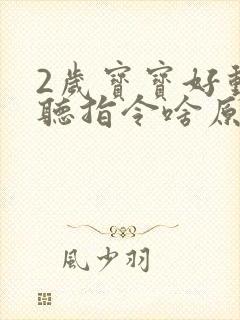 2歲寶寶好動
聽指令啥原
風少羽